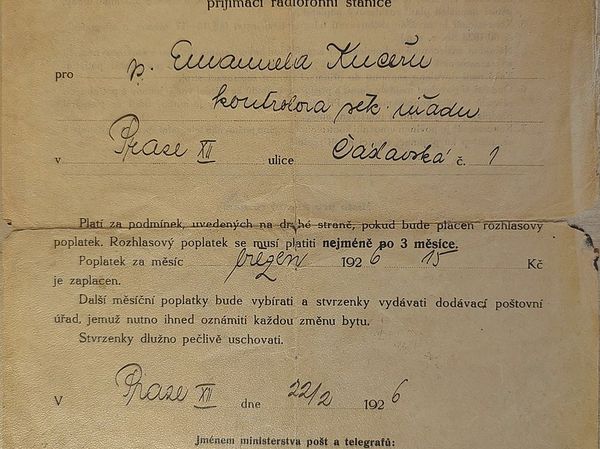 přijímací radiofonní stanice
pro p. Emanuela Kučeru
kontrolora pět. úřadu
v Praze XII ulice Čáslavská č. 1
Platí za podmínek, uvedených na druhé straně, pokud bude placen rozhlasový
poplatek. Rozhlasový poplatek se musí platiti nejméně po 3 měsíce.
Poplatek za měsíc březen 1926 15 Kč
je zaplacen.
Další měsíční poplatky bude vybírati a stvrzenky vydávati dodávací poštovní
úřad, jemuž nutno ihned oznámiti každou změnu bytu.
Stvrzenky dlužno pečlivě uschovati.
V Praze XII dne 22/2 1926
Jménem ministerstva pošt a telegrafů: